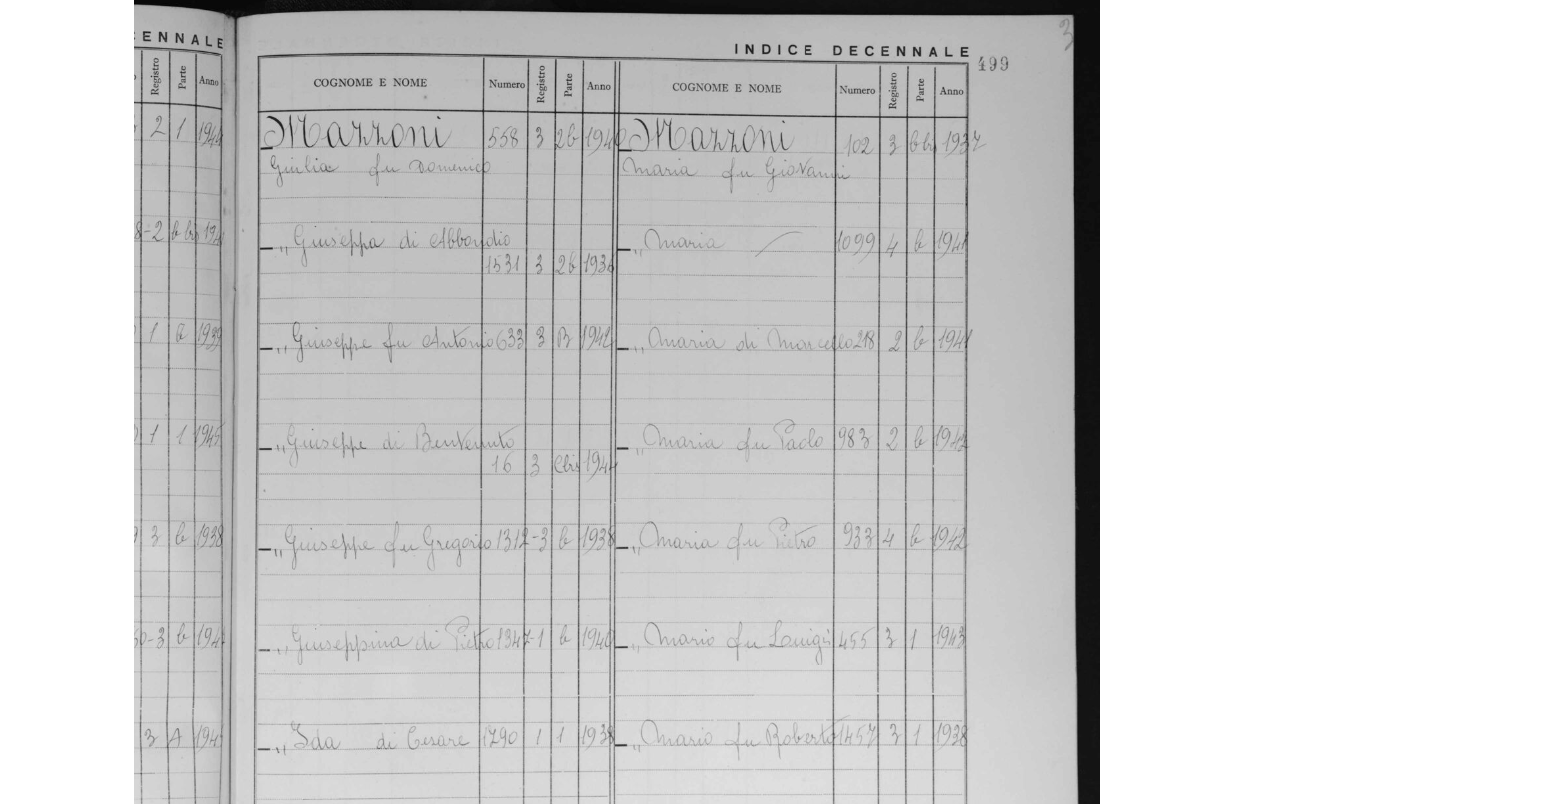 ENNALE
Registro Parte Anno
2 1 1944
8-2 b bis 194
1 b 1939
1 1 1945
3 b 1938
50-3 b 194
3 A 194
3
INDICE DECENNALE
499
COGNOME E NOME Numero Registro Parte Anno
Mazzoni 558 3 2b 1940
Giulia fu Domenico
„ Giuseppa di Abbondio
1531 3 2b 1936
„ Giuseppe fu Antonio 633 3 B 1942
„ Giuseppe di Benvenuto
16 3 Cbis 1944
„ Giuseppe fu Gregorio 1312-3 b 1938
„ Giuseppina di Pietro 1347-1 b 1940
„ Ida di Cesare 1790 1 1 1938
COGNOME E NOME Numero Registro Parte Anno
Mazzoni 102 3 b bis 1937
Maria fu Giovanni
„ Maria 1099 4 b 1941
„ Maria di Marcello 218 2 b 1941
„ Maria fu Paolo 983 2 b 1942
„ Maria fu Pietro 933 4 b 1942
„ Mario fu Louigi 455 3 1 1943
„ Mario fu Roberto 1457 3 1 1938